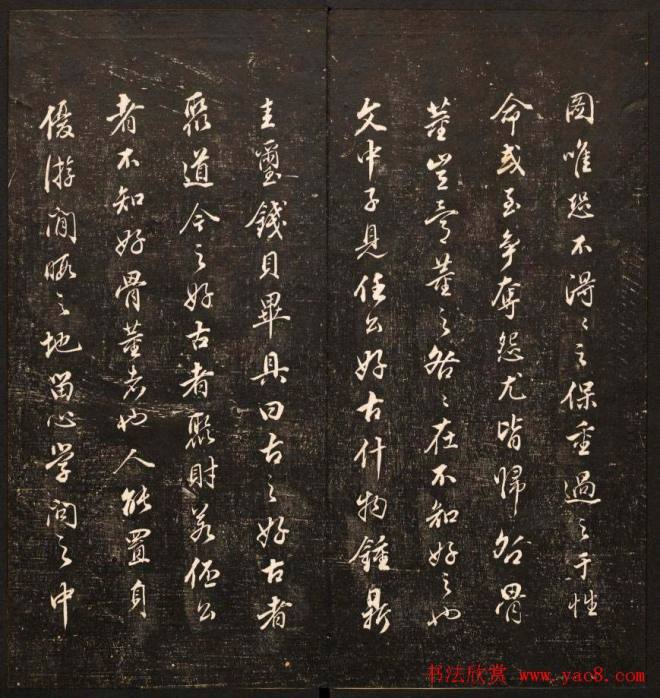 圖唯恐不得〻之保重過之于性
命或至爭奪怨尤皆歸咎骨
董豈骨董之咎〻在不知好之也
文中子見任公好古什物鍾鼎
圭璽錢貝畢具曰古之好古者
聚道今之好古者聚財若任公
者不知好骨董者也人能置身
優游閒暇之地留心學問之中
书法欣赏 www.yac8.com